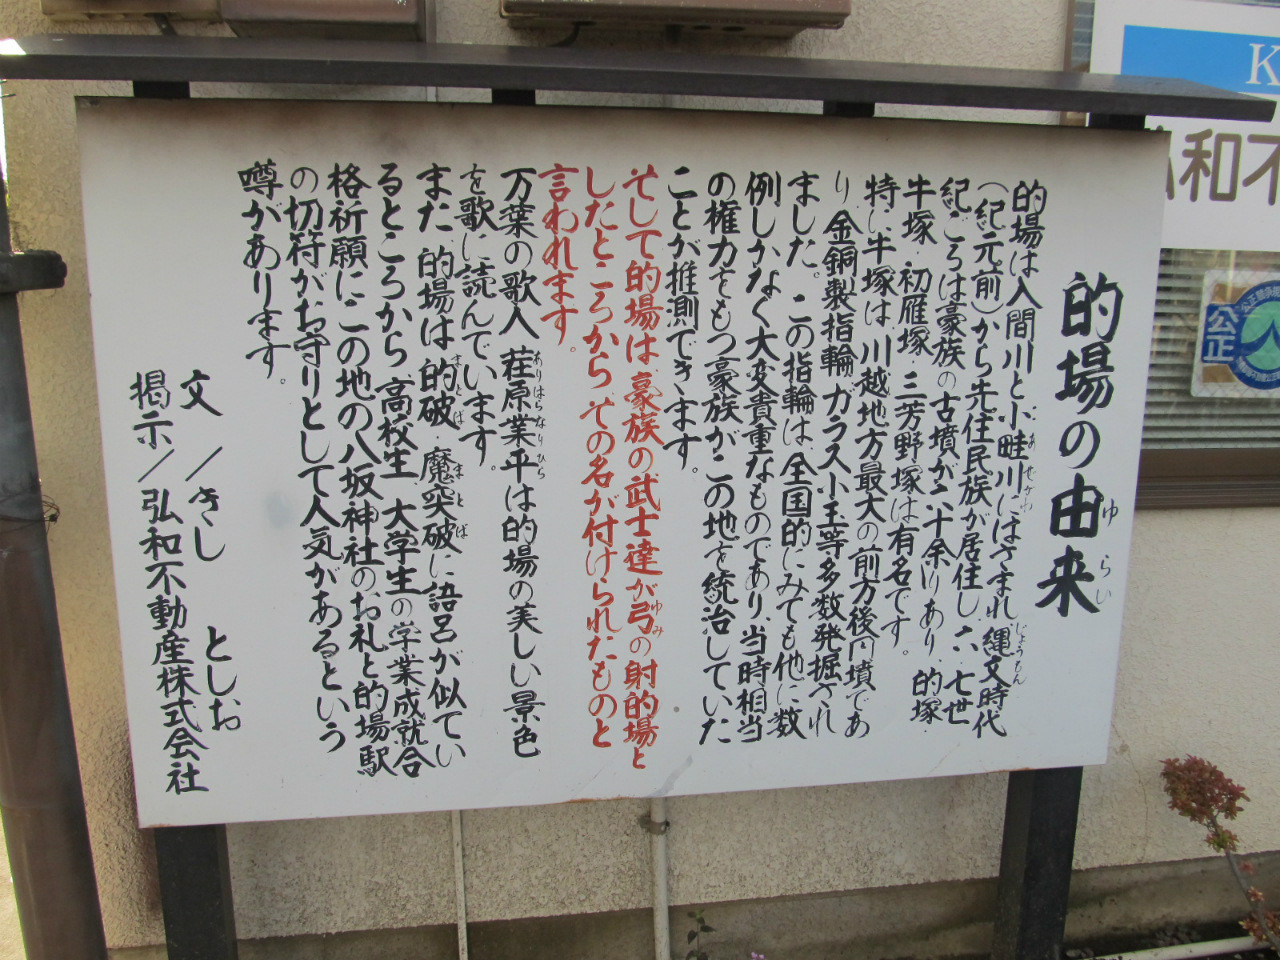 的場の由来
ゆらい
的場は入間川と小畦川にはさまれ縄文時代
あぜがわ
じょうもん
(紀元前)から先住民族が居住し、六、七世
紀ごろは豪族の古墳が六十余りあり、的塚・
牛塚・初雁塚・三芳野塚は有名です。
特に牛塚は、川越地方最大の前方後円墳であ
り、金銅製指輪、ガラス小玉等多数発掘され
ました。この指輪は、全国的にみても他に数
例しかなく大変貴重なものであり、当時相当
の権力をもつ豪族がこの地を統治していた
ことが推測できます。
そして的場は、豪族の武士達が弓の射的場と
ゆみ
したところから、その名が付けられたものと
言われます。
万葉の歌人、荏原業平は的場の美しい景色
ありはらなりひら
を歌に読んでいます。
また、的場は、的破・魔突破に語呂が似てい
まとば
まとば
るところから、高校生、大学生の学業成就合
格祈願に、この地の八坂神社のお札と的場駅
の切符がお守りとして人気があるという
噂があります。
文／きし としお
掲示／弘和不動産株式会社
K
弘和不
公正